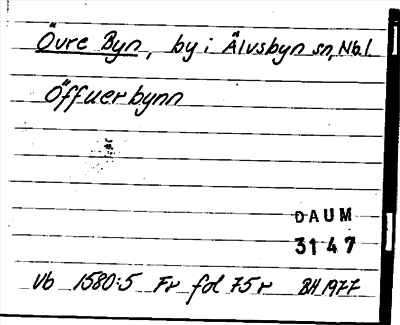 Övre Byn, by i Älvsbyn sn, Nbl.
Öffuerbynn
DAUM
3147
Vb 1580:5 Fr fol 75r BH 1977